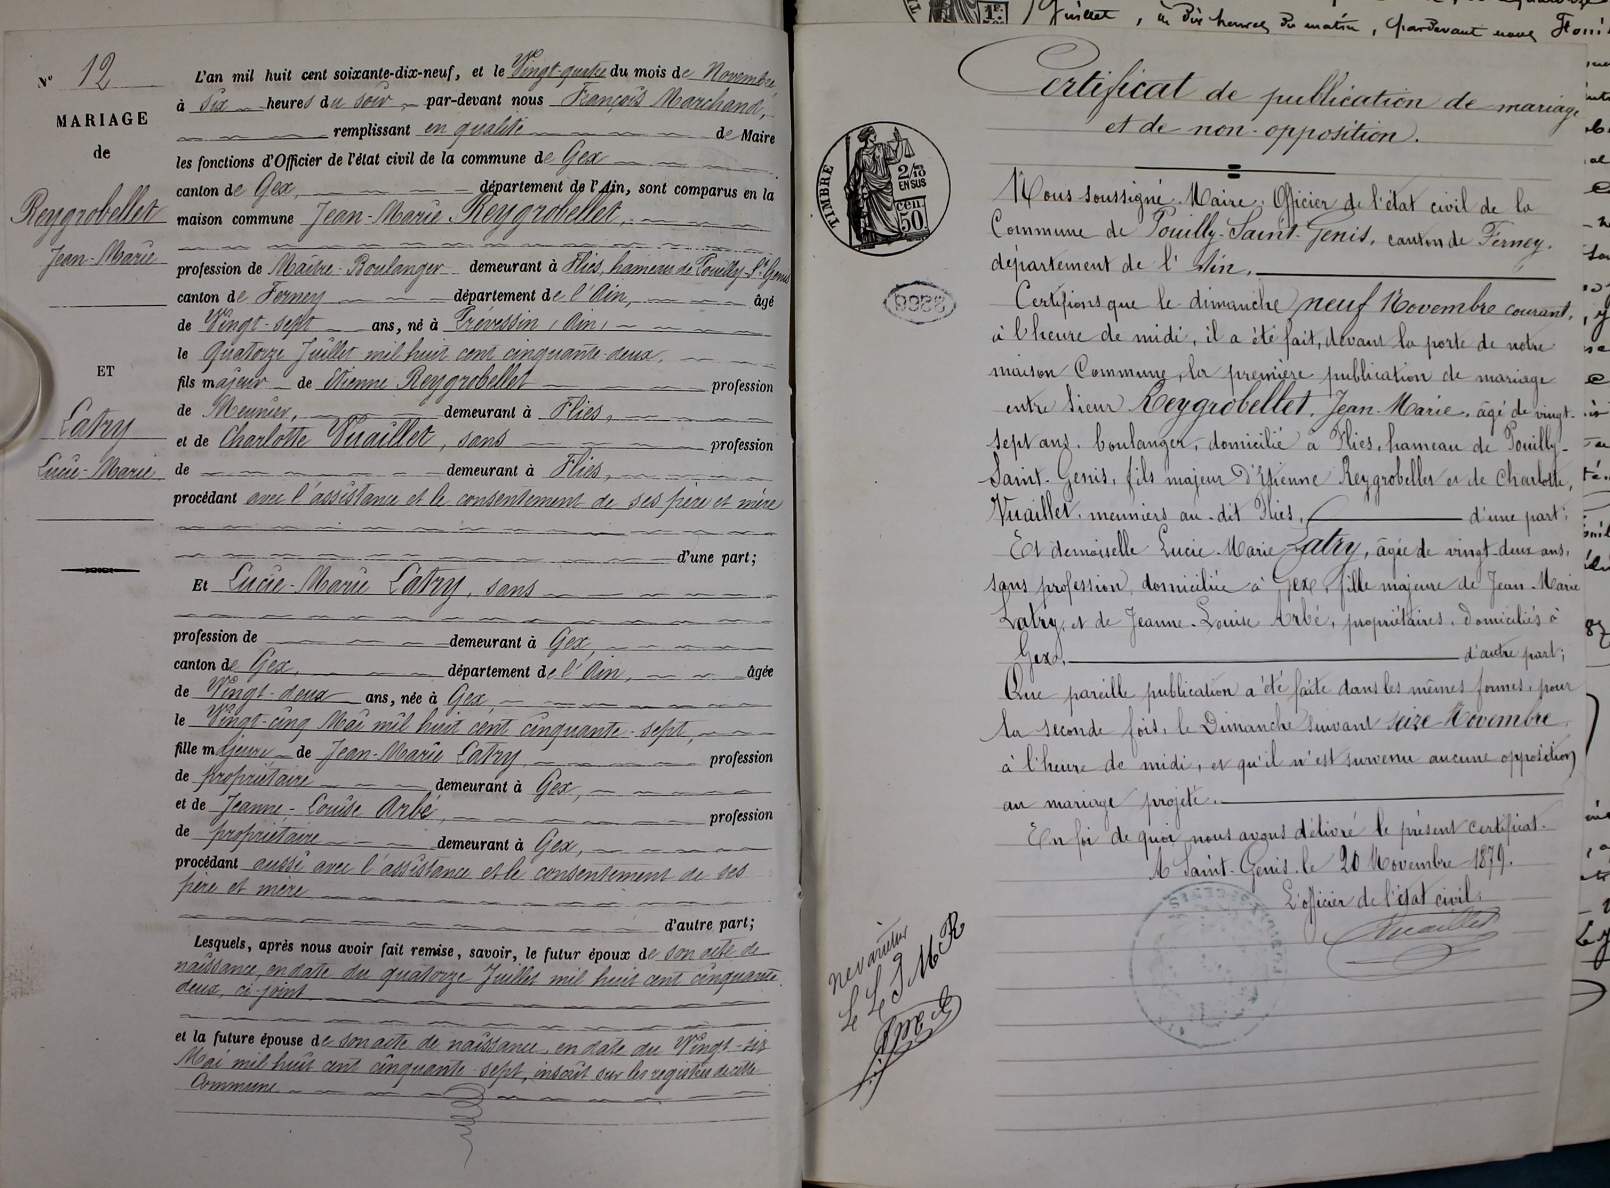 Nº 12
MARIAGE
de
Reygrobellet
Jean-Marie
ET
Latry
Lucie-Marie
L'an mil huit cent soixante-dix-neuf, et le Vingt-quatre du mois de Novembre
à Six heures du soir par-devant nous François Marchand,
remplissant en qualité de Maire
les fonctions d'Officier de l'état civil de la commune de Gex
canton de Gex, département de l'Ain, sont comparus en la
maison commune Jean-Marie Reygrobellet,
profession de Maître-Boulanger demeurant à Flies, hameau de Pouilly-St Genis
canton de Ferney département de l'Ain, âgé
de Vingt-sept ans, né à Prévessin, Ain,
le Quatorze Juillet mil huit cent cinquante-deux,
fils majeur de Etienne Reygrobellet profession
de Meunier, demeurant à Flies,
et de Charlotte Vuaillet, sans profession
de demeurant à Flies,
procédant avec l'assistance et le consentement de ses père et mère
d'une part;
Et Lucie-Marie Latry, sans
profession de demeurant à Gex,
canton de Gex, département de l'Ain, âgée
de Vingt-deux ans, née à Gex,
le Vingt-cinq Mai mil huit cent cinquante-sept,
fille majeure de Jean-Marie Latry, profession
de propriétaire demeurant à Gex,
et de Jeanne-Louise Arbé, profession
de propriétaire demeurant à Gex,
procédant aussi avec l'assistance et le consentement de ses
père et mère
d'autre part;
Lesquels, après nous avoir fait remise, savoir, le futur époux de son acte de
naissance, en date du quatorze Juillet mil huit cent cinquante
deux, ci-joint
et la future épouse de son acte de naissance, en date du Vingt-six
Mai mil huit cent cinquante-sept, inscrit sur les registres de cette
Commune
Juillet, à dix heures du matin, pardevant nous
Certificat de publication de mariage
et de non-opposition.
TIMBRE
2/10
EN SUS
50 cen
3266
Nous soussigné Maire, Officier de l'état civil de la
Commune de Pouilly-Saint-Genis, canton de Ferney,
département de l'Ain,
Certifions que le dimanche neuf Novembre courant,
à l'heure de midi, il a été fait, devant la porte de notre
maison Commune, la première publication de mariage
entre Sieur Reygrobellet, Jean-Marie, âgé de vingt-
sept ans, boulanger, domicilié à Flies, hameau de Pouilly-
Saint-Genis, fils majeur d'Etienne Reygrobellet et de Charlotte,
Vuaillet, meuniers au-dit Flies, d'une part;
Et demoiselle Lucie-Marie Latry, âgée de vingt-deux ans,
sans profession, domiciliée à Gex, fille majeure de Jean-Marie
Latry, et de Jeanne-Louise Arbé, propriétaires, domiciliés à
Gex, d'autre part;
Que pareille publication a été faite dans les mêmes formes, pour
la seconde fois, le Dimanche suivant seize Novembre,
à l'heure de midi, et qu'il n'est survenu aucune opposition
au mariage projeté.
En foi de quoi nous avons délivré le présent certificat.
A Saint-Genis, le 20 Novembre 1879.
L'officier de l'état civil,
Vuaillet
ne varietur